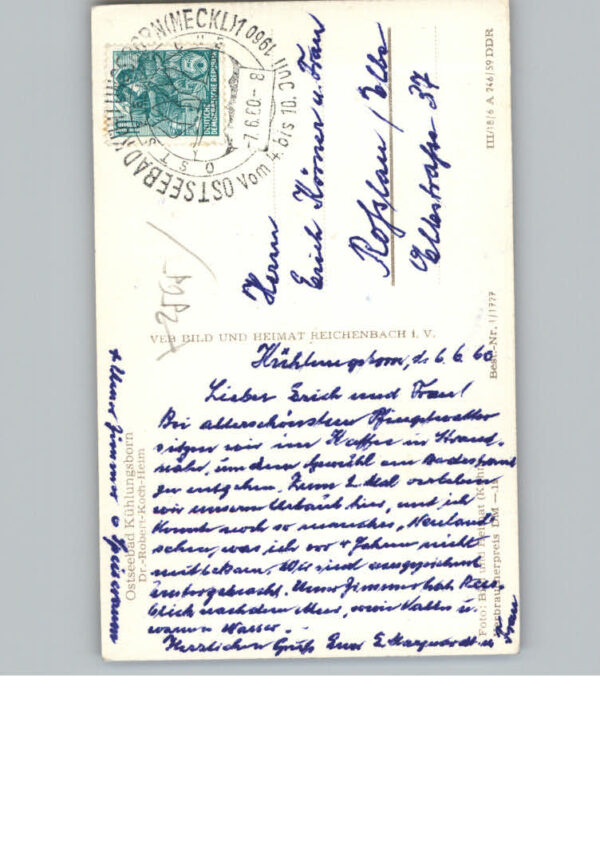 OSTSEEBAD KÜHLUNGSBORN (MECKL) 1
OSTSEE vom 4. bis 10. JULI 1960
-7.6.60-8
DEUTSCHE
DEMOKRATISCHE REPUBLIK
5
Herrn
Erich Körner u. Frau
Roßlau / Elbe
Elbstraße 37
III/18/6 A 246/59 DDR
VEB BILD UND HEIMAT REICHENBACH i. V.
Best.-Nr. 1/1727
Kühlungsborn, d. 6.6.60
Lieber Erich und Frau!
Bei allerschönsten Pfingstwetter
sitzen wir im Kaffee in Strand-
nähe, um dem Gewühl am Badestrand
zu entgehen. Zum 2. Mal verleben
wir unsern Urlaub hier, und ich
konnte noch so manches Neuland
sehen, was ich vor 4 Jahren nicht
mitbekam. sind ausgezeichnet
untergebracht. Unser Zimmer hat
Blick nach dem Meer, sowie kaltes u.
warmes Wasser.
Herzlichen Gruß Euer E. Marquardt u.
Frau
+ Unser Zimmer o Speiseraum
Ostseebad Kühlungsborn
Dr.-Robert-Koch-Heim
Foto: Bild und Heimat
Verbraucherpreis DM